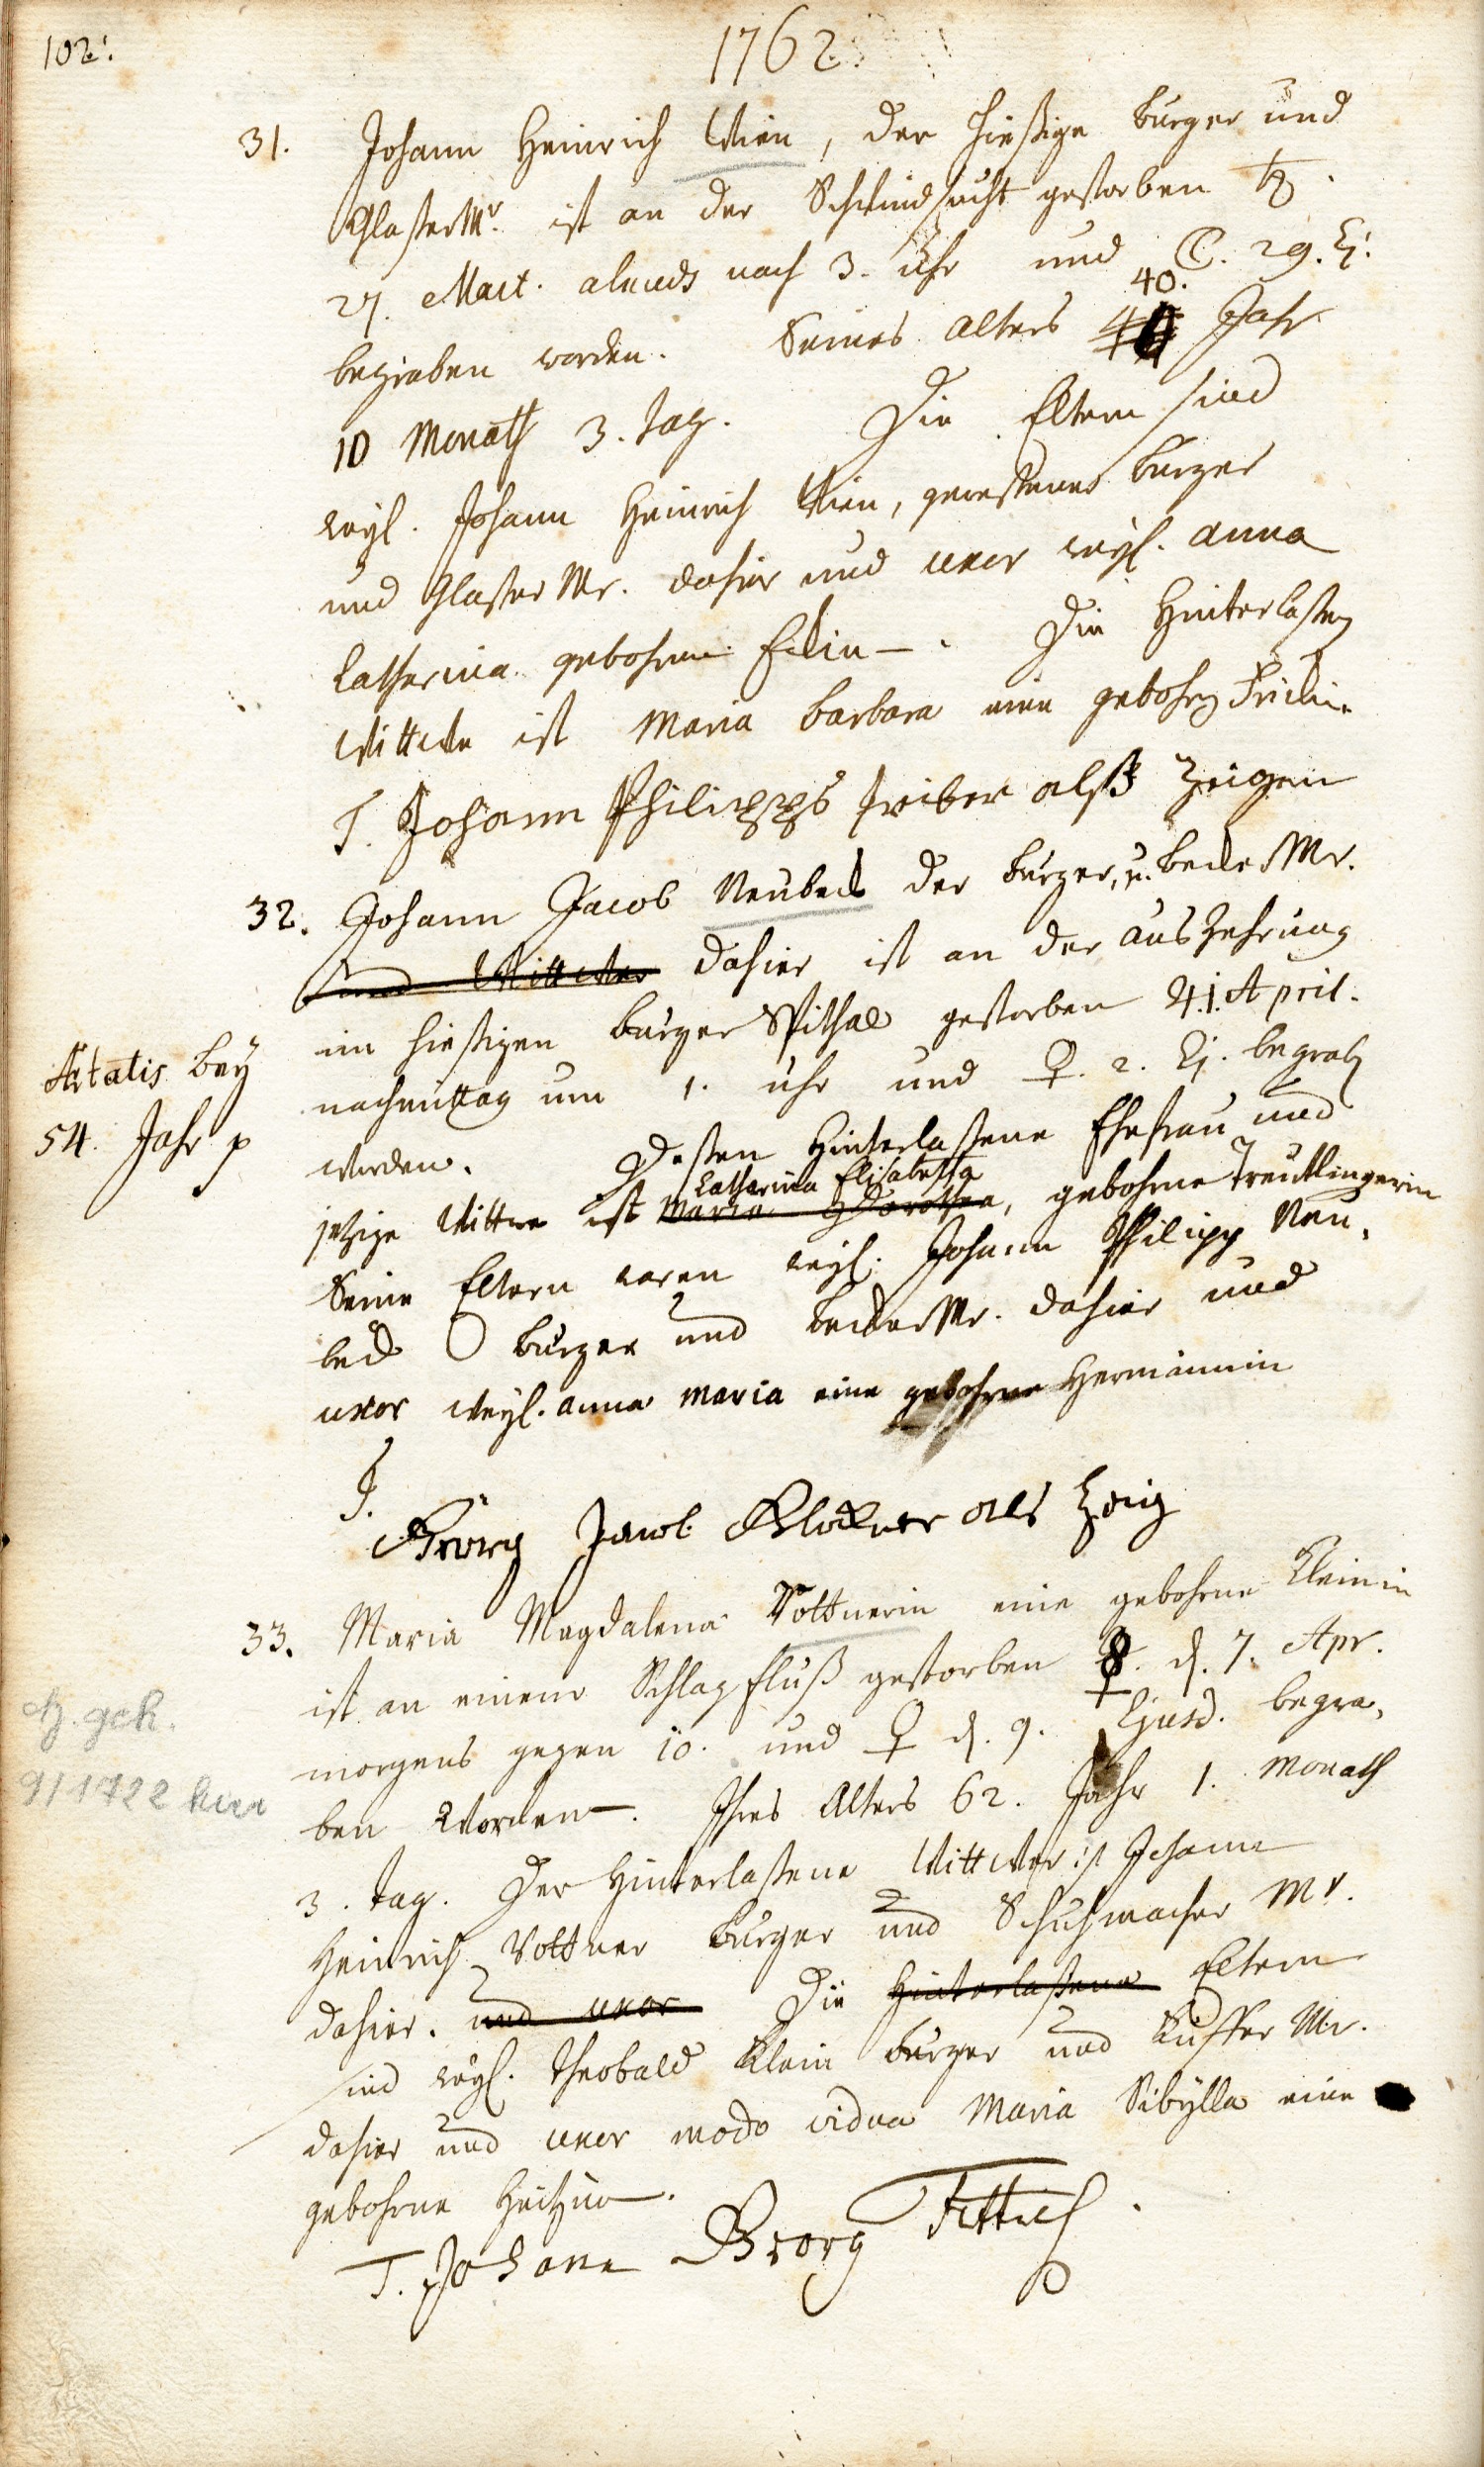 102.
1762.
31. Johann Heinrich Wien, der hießige burger und
Glaßer Mr. ist an der Schwindsucht gestorben ♄.
27. Mart. abends nach 3. Uhr und ☾. 29. Ej.
begraben worden. Seines alters 40. Jahr
10 Monath 3. tag. Die Eltern sind
weyl. Johann Heinrich Wien, geweßener burger
und Glaßer Mr. dahier und uxor weyl. anna
Catharina gebohrne
Die Hinterlaßen
Wittwe ist Maria barbara eine gebohrn
T. Johann Philipps treiber alß Zeigen
32. Johann Jacob Neubeck der burger, u. becker Mr.
und Wittwer dahier ist an der ausZehrung
im hießigen burger Spithal gestorben ♃. 1. April.
Aetatis bey
54. Jahr p
nachmittag um 1. uhr und ♀. 2. Ej. begrab
worden. Deßen Hinterlaßene Ehefrau und
Catharina Elisabetha
jetzige Wittwe ist Maria Dorothea, gebohrne Treutlingerin
Seine Eltern waren weyl. Johann Philipp Neu-
beck burger und becker Mr. dahier und
uxor weyl. anna maria eine gebohrne Hermännin
T.
Georg Jacob Glockner als Zeig
33. Maria Magdalena Vottnerin eine gebohrne Kleinin
ist an einem Schlagfluß gestorben d. 7. Apr.
morgens gegen 10. und ♀ d. 9. Ejusd. begra-
ben worden. Ihres Alters 62. Jahr 1. Monath
3. tag. Der Hinterlaßene Wittwer ist Johann
Heinrich Vottner burger und Schuhmacher Mr.
dahier. und uxor Die Hinterlaßene Eltern
sind weyl. Theobald Klein burger und Küffer Mr.
dahier und uxor modo vidua Maria Sibylla eine
gebohrne
T. Johann Georg Fettich